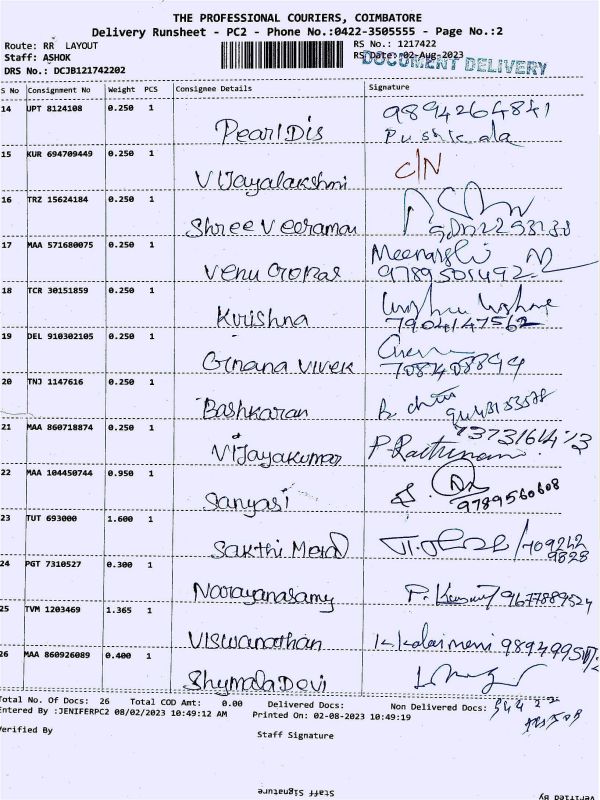 THE PROFESSIONAL COURIERS, COIMBATORE
Delivery Runsheet - PC2 - Phone No.:0422-3505555 - Page No.:2
Route: RR LAYOUT
RS No.: 1217422
Staff: ASHOK
RS Date: 02-Aug-2023
DOCUMENT DELIVERY
DRS No.: DCJB121742202
S No Consignment No Weight PCS Consignee Details Signature
14 UPT 8124108 0.250 1 Pearl Dis 9894264841
Pushkala
15 KUR 694709449 0.250 1 Vijayalakshmi C/N
16 TRZ 15624184 0.250 1 Shree Veeramani
17 MAA 571680075 0.250 1 Venu Gopal
9789501492
18 TCR 30151859 0.250 1 Krishna
7904147562
19 DEL 910302105 0.250 1 Gnana Vivek
7081408899
20 TNJ 1147616 0.250 1 Bashkaran
21 MAA 860718874 0.250 1 Vijayakumar
22 MAA 104450744 0.950 1 Sanyasi
9789560608
23 TUT 693000 1.600 1 Sakthi Metal
24 PGT 7310527 0.300 1 Naarayanasamy
25 TVM 1203469 1.365 1 Viswanathan
26 MAA 860926089 0.400 1 Shymala Devi
Total No. Of Docs: 26 Total COD Amt: 0.00 Delivered Docs: Non Delivered Docs:
Entered By :JENIFERPC2 08/02/2023 10:49:12 AM Printed On: 02-08-2023 10:49:19
Verified By
Staff Signature
Staff Signature
Verified By